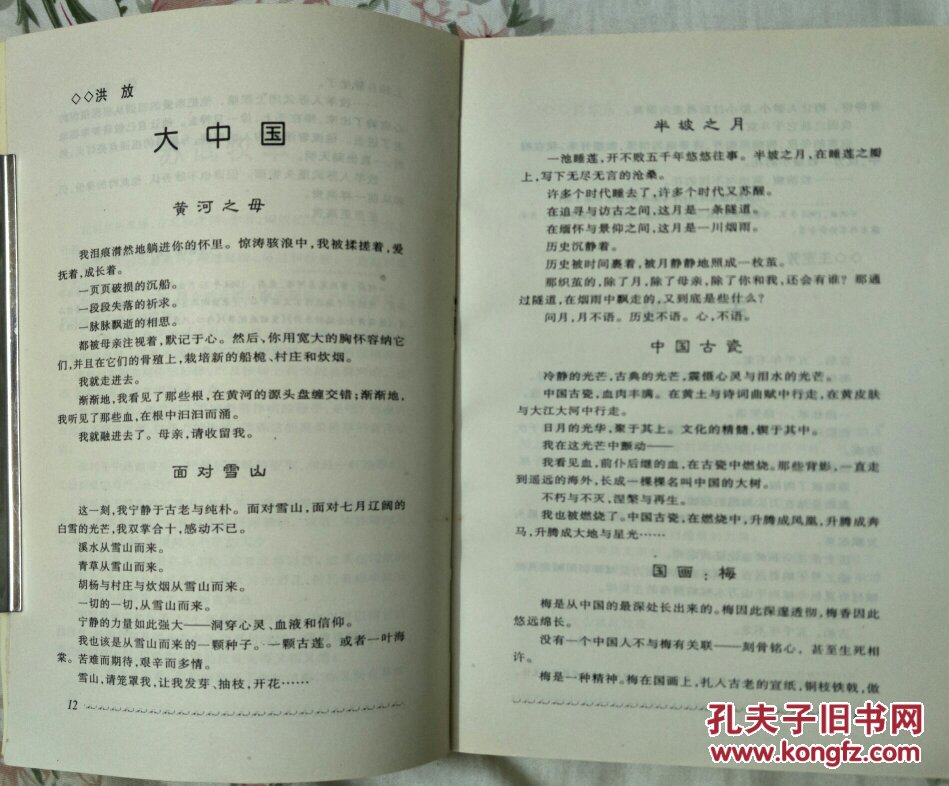 ◇◇洪 放
大中国
黄河之母
我泪痕潸然地躺进你的怀里。惊涛骇浪中,我被揉搓着,爱
抚着,成长着。
一页页破损的沉船。
一段段失落的祈求。
一脉脉飘逝的相思。
都被母亲注视着,默记于心。然后、你用宽大的胸怀容纳它
们,并且在它们的骨殖上,栽培新的船桅、村庄和炊烟。
我就走进去。
渐渐地,我看见了那些根,在黄河的源头盘缠交错;渐渐地,
我听见了那些血,在根中汩汩而涌。
我就融进去了。母亲,请收留我。
面对雪山
这一刻,我宁静于古老与纯朴。面对雪山,面对七月辽阔的
白雪的光芒,我双掌合十,感动不已。
溪水从雪山而来。
青草从雪山而来。
胡杨与村庄与炊烟从雪山而来。
一切的一切,从雪山而来。
宁静的力量如此强大——洞穿心灵、血液和信仰。
我也该是从雪山而来的一颗种子。一颗古莲。或者一叶海
棠。苦难而期待,艰辛而多情。
雪山,请笼罩我,让我发芽、抽枝,开花……
12
半坡之月
一池睡莲,开不败五千年悠悠往事。半坡之月,在睡莲之瓣
上,写下无尽无言的沧桑。
许多个时代睡去了,许多个时代又苏醒。
在追寻与访古之间,这月是一条隧道。
在缅怀与景仰之间,这月是一川烟雨。
历史沉静着。
历史被时间裹着,被月静静地照成一枚茧。
那织茧的,除了月,除了母亲,除了你和我,还会有谁?那通
过隧道,在烟雨中飘走的,又到底是些什么?
问月,月不语。历史不语。心,不语。
中国古瓷
冷静的光芒,古典的光芒,震慑心灵与泪水的光芒。
中国古瓷,血肉丰满。在黄土与诗词曲赋中行走,在黄皮肤
与大江大河中行走。
日月的光华,聚于其上。文化的精髓,锲于其中。
我在这光芒中颤动——
我看见血,前仆后继的血,在古瓷中燃烧。那些背影,一直走
到遥远的海外,长成一棵棵名叫中国的大树。
不朽与不灭,涅槃与再生。
我也被燃烧了。中国古瓷,在燃烧中,升腾成凤凰,升腾成奔
马,升腾成大地与星光……
国画:梅
梅是从中国的最深处长出来的。梅因此深邃透彻,梅香因此
悠远绵长。
没有一个中国人不与梅有关联——刻骨铭心,甚至生死相
许。
梅是一种精神。梅在国画上,扎人古老的宣纸,铜枝铁戟,傲
孔夫子旧书网
www.kongfz.com